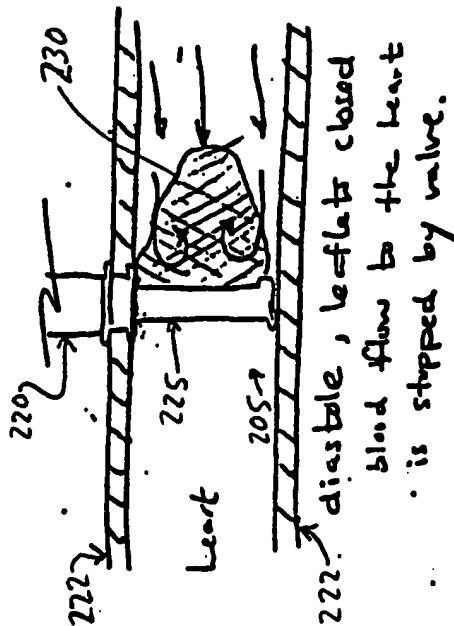 220
230
222
225
205
heart
222
diastole, leaflets closed
blood flow to the heart
is stopped by valve.